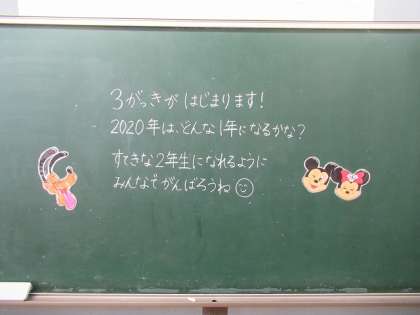 3がっきが はじまります!
2020年は、どんな1年になるかな?
すてきな2年生になれるように
みんなで がんばろうね